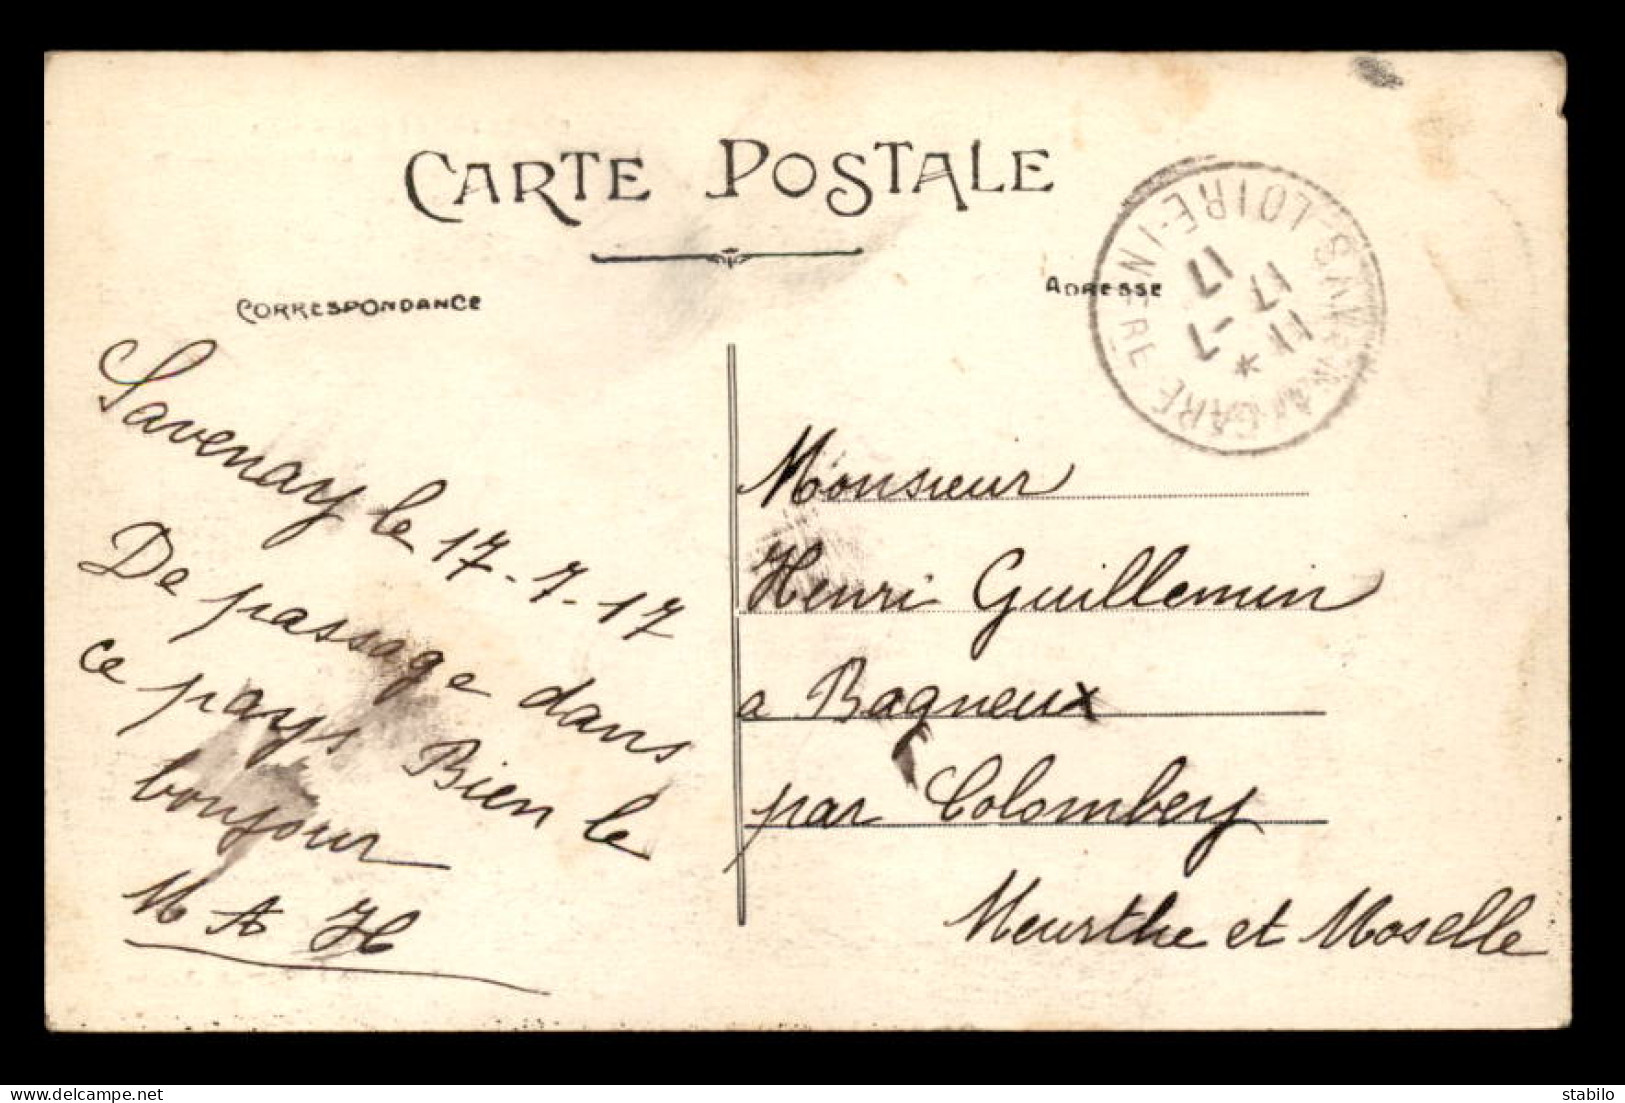 CARTE POSTALE
CORRESPONDANCE
ADRESSE
GARE LOIRE-INFRE
11
17 -7
17
Savenay le 17-7-17
De passage dans
ce pays Bien le
bonjour
M A H
Monsieur
Henri Guillemin
a Bagneux
par Colombey
Meurthe et Moselle
stabilo